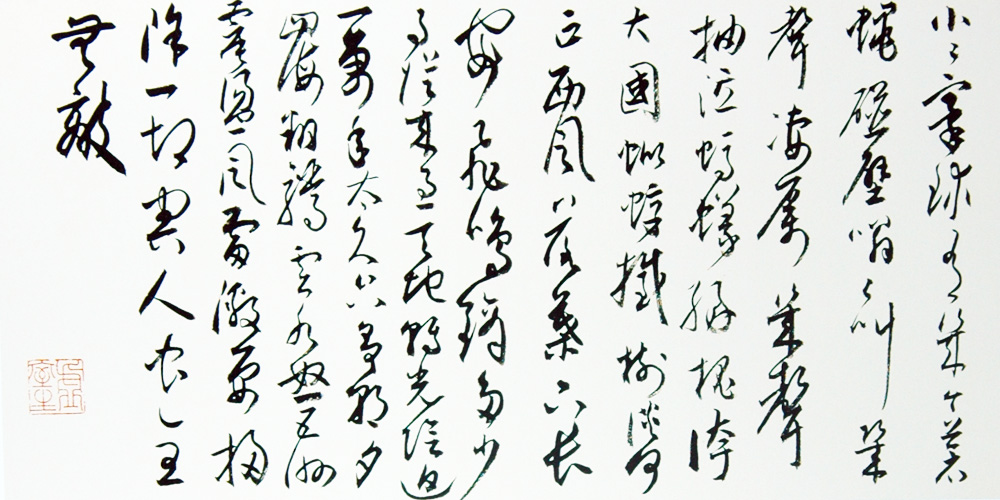 小小寰球有幾个蒼
蠅碰壁嗡嗡叫幾
聲凄厲幾聲
抽泣螞蟻緣槐誇
大國蚍蜉撼樹談何
易正西風落葉下長
安飛鳴鏑多少
事從來急天地轉光陰迫
一萬年太久只爭朝夕
四海翻騰雲水怒五洲
震盪風雷激要掃
除一切害人虫全
無敵